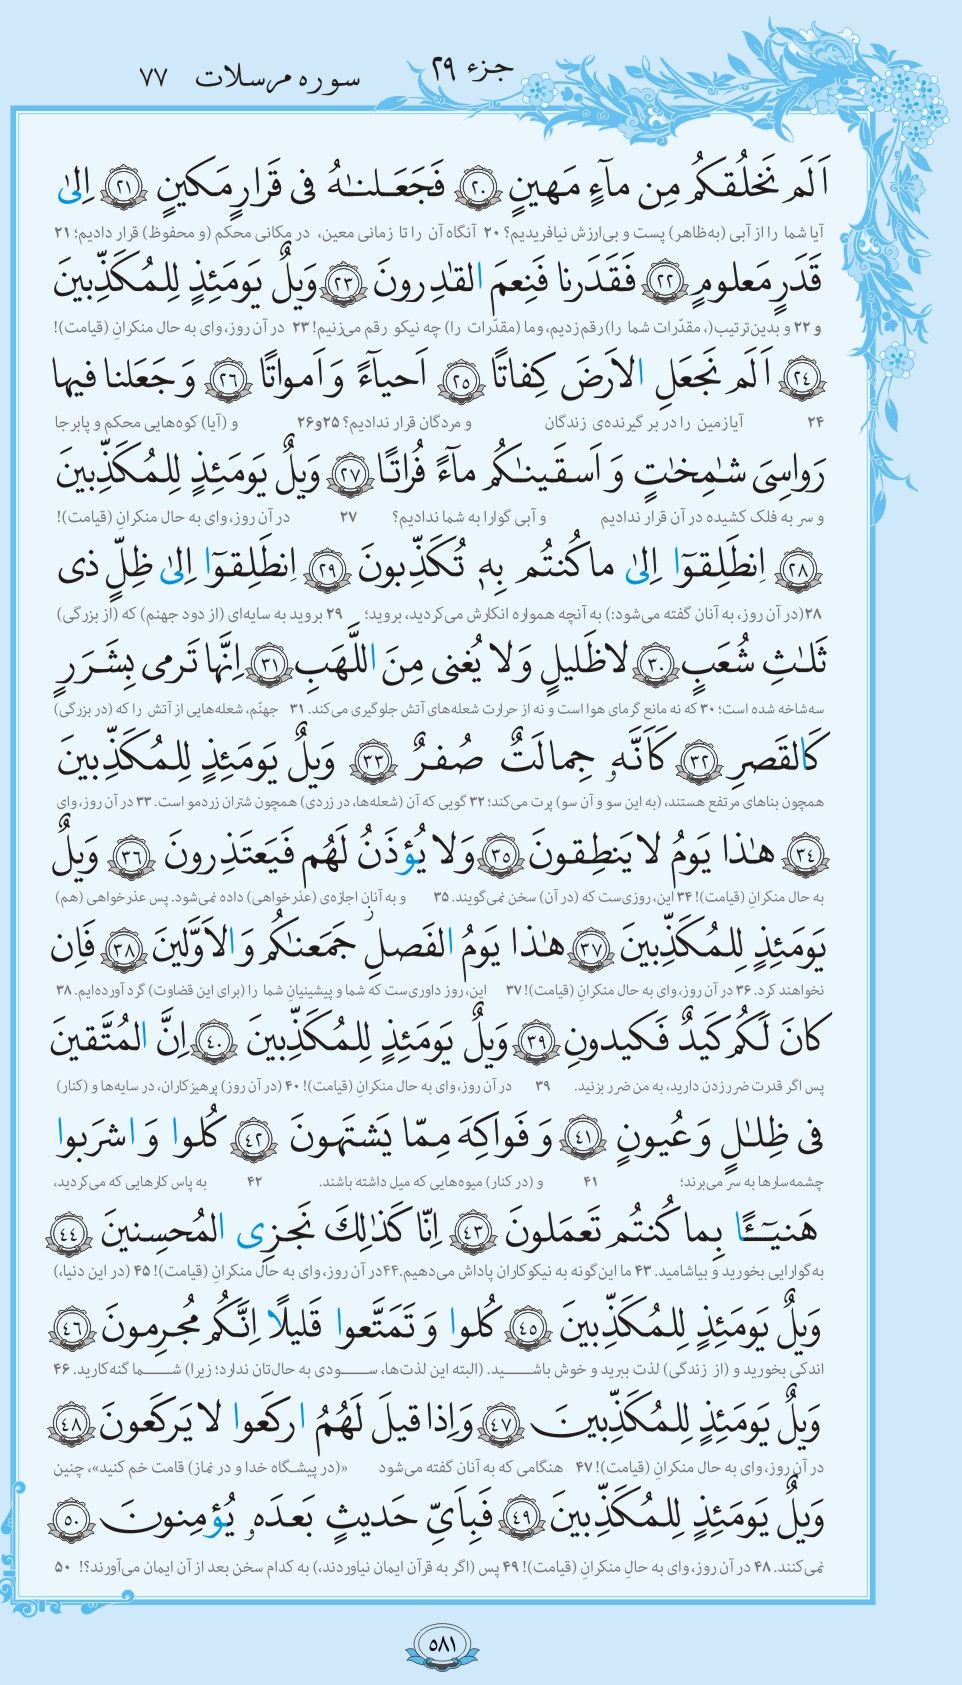 جزء ۲۹
سوره مرسلات ۷۷
اَلَم نَخلُقكُم مِن مآءٍ مَهینٍ ﴿٢٠﴾ فَجَعَلنـٰهُ فی قَرارٍ مَکینٍ ﴿٢١﴾ اِلیٰ
آیا شما را از آبی (به‌ظاهر) پست و بی‌ارزش نیافریدیم؟ ۲۰ آنگاه آن را تا زمانی معین، در مکانی محکم (و محفوظ) قرار دادیم؛ ۲۱
قَدَرٍ مَعلومٍ ﴿٢٢﴾ فَقَدَرنا فَنِعمَ القـٰدِرونَ ﴿٢٣﴾ وَیلٌ یَومَئِذٍ لِلمُکَذِّبینَ
و ۲۲ و بدین‌ترتیب(، مقدّرات شما را) رقم زدیم، وما (مقدّرات را) چه نیکو رقم می‌زنیم! ۲۳ در آن روز، وای به حال منکرانِ (قیامت)!
﴿٢٤﴾ اَلَم نَجعَلِ الاَرضَ کِفاتًا ﴿٢٥﴾ اَحیآءً وَ اَمواتًا ﴿٢٦﴾ وَ جَعَلنا فیها
۲۴ آیا زمین را در بر گیرنده‌ی زندگان و مردگان قرار ندادیم؟ ۲۵و۲۶ و (آیا) کوه‌هایی محکم و پابرجا
رَواسِیَ شـٰمِخـٰتٍ وَ اَسقَینـٰکُم مآءً فُراتًا ﴿٢٧﴾ وَیلٌ یَومَئِذٍ لِلمُکَذِّبینَ
و سر به فلک کشیده در آن قرار ندادیم و آبی گوارا به شما ندادیم؟ ۲۷ در آن روز، وای به حال منکرانِ (قیامت)!
﴿٢٨﴾ اِنطَلِقوٓا اِلیٰ ما کُنتُم بِهٖ تُکَذِّبونَ ﴿٢٩﴾ اِنطَلِقوٓا اِلیٰ ظِلٍّ ذی
۲۸(در آن روز، به آنان گفته می‌شود:) به آنچه همواره انکارش می‌کردید، بروید؛ ۲۹ بروید به سایه‌ای (از دود جهنم) که (از بزرگی)
ثَلـٰثِ شُعَبٍ ﴿٣٠﴾ لا ظَلیلٍ وَ لا یُغنی مِنَ اللَّهَبِ ﴿٣١﴾ اِنَّها تَرمی بِشَرَرٍ
سه‌شاخه شده است؛ ۳۰ که نه مانع گرمای هوا است و نه از حرارت شعله‌های آتش جلوگیری می‌کند. ۳۱ جهنّم، شعله‌هایی از آتش را که (در بزرگی)
کَالقَصرِ ﴿٣٢﴾ کَاَنَّهٗ جِمالَتٌ صُفرٌ ﴿٣٣﴾ وَیلٌ یَومَئِذٍ لِلمُکَذِّبینَ
همچون بناهای مرتفع هستند، (به این سو و آن سو) پرت می‌کند؛ ۳۲ گویی که آن (شعله‌ها، در زردی) همچون شتران زردمو است. ۳۳ در آن روز، وای
﴿٣٤﴾ هـٰذا یَومُ لا یَنطِقونَ ﴿٣٥﴾ وَ لا یُؤذَنُ لَهُم فَیَعتَذِرونَ ﴿٣٦﴾ وَیلٌ
به حال منکرانِ (قیامت)! ۳۴ این، روزی‌ست که (در آن) سخن نمی‌گویند. ۳۵ و به آنان اجازه‌ی (عذرخواهی) داده نمی‌شود. پس عذرخواهی (هم)
یَومَئِذٍ لِلمُکَذِّبینَ ﴿٣٧﴾ هـٰذا یَومُ الفَصلِ ز جَمَعنـٰکُم وَ الاَوَّلینَ ﴿٣٨﴾ فَاِن
نخواهند کرد. ۳۶ در آن روز، وای به حال منکرانِ (قیامت)! ۳۷ این، روز داوری‌ست که شما و پیشینیان شما را (برای این قضاوت) گرد آورده‌ایم. ۳۸
کانَ لَکُم کَیدٌ فَکیدونِ ﴿٣٩﴾ وَیلٌ یَومَئِذٍ لِلمُکَذِّبینَ ﴿٤٠﴾ اِنَّ المُتَّقینَ
پس اگر قدرت ضرر زدن دارید، به من ضرر بزنید. ۳۹ در آن روز، وای به حال منکرانِ (قیامت)! ۴۰ (در آن روز) پرهیزکاران، در سایه‌ها و (کنار)
فی ظِلـٰلٍ وَ عُیونٍ ﴿٤١﴾ وَ فَواکِهَ مِمّا یَشتَهونَ ﴿٤٢﴾ کُلوا وَ اشرَبوا
چشمه‌سارها به سر می‌برند؛ ۴۱ و (در کنار) میوه‌هایی که میل داشته باشند. ۴۲ به پاس کارهایی که می‌کردید،
هَنیـٓـًٔا بِما کُنتُم تَعمَلونَ ﴿٤٣﴾ اِنّا کَذٰلِکَ نَجزِی المُحسِنینَ ﴿٤٤﴾
به گوارایی بخورید و بیاشامید. ۴۳ ما این‌گونه به نیکوکاران پاداش می‌دهیم.۴۴ در آن روز، وای به حال منکرانِ (قیامت)! ۴۵ (در این دنیا،)
وَیلٌ یَومَئِذٍ لِلمُکَذِّبینَ ﴿٤٥﴾ کُلوا وَ تَمَتَّعوا قَلیلًا اِنَّکُم مُجرِمونَ ﴿٤٦﴾
اندکی بخورید و (از زندگی) لذت ببرید و خوش باشـــید. (البته این لذت‌ها، ســـودی به حال‌تان ندارد؛ زیرا) شـــما گنه‌کارید. ۴۶
وَیلٌ یَومَئِذٍ لِلمُکَذِّبینَ ﴿٤٧﴾ وَ اِذا قیلَ لَهُمُ ارکَعوا لا یَرکَعونَ ﴿٤٨﴾
در آن روز، وای به حال منکرانِ (قیامت)! ۴۷ هنگامی که به آنان گفته می‌شود «(در پیشگاه خدا و در نماز) قامت خم کنید»، چنین
وَیلٌ یَومَئِذٍ لِلمُکَذِّبینَ ﴿٤٩﴾ فَبِاَیِّ حَدیثٍ بَعدَهٗ یُؤمِنونَ ﴿٥٠﴾
نمی‌کنند. ۴۸ در آن روز، وای به حال منکرانِ (قیامت)! ۴۹ پس (اگر به قرآن ایمان نیاوردند،) به کدام سخن بعد از آن ایمان می‌آورند؟! ۵۰
۵۸۱